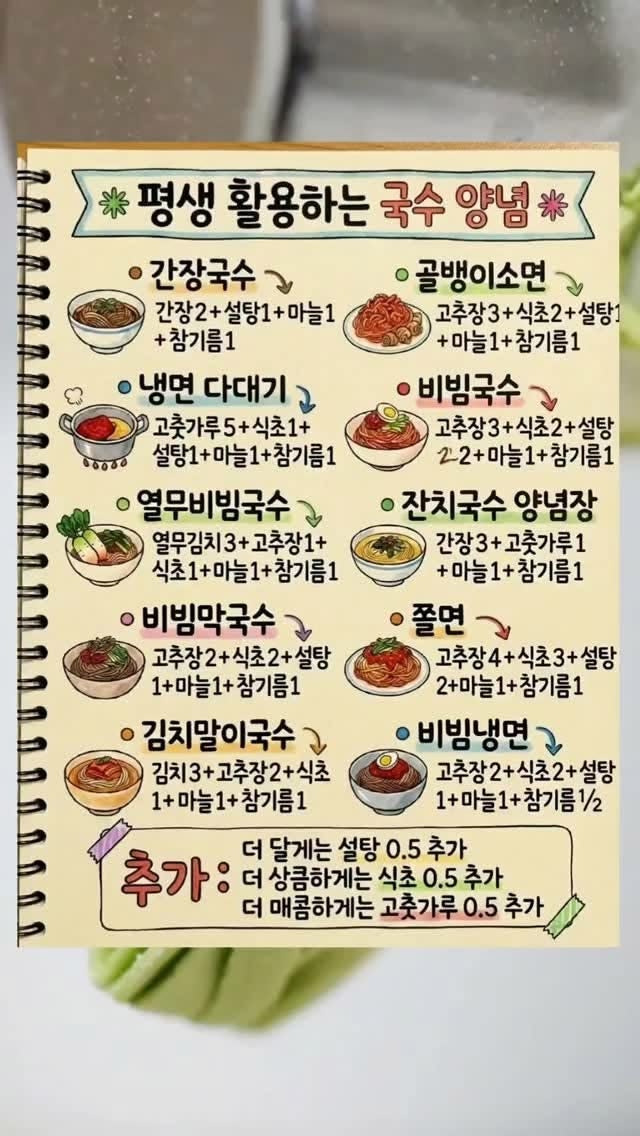 평생 활용하는 국수 양념
간장국수
간장2+설탕1+마늘1
+참기름1
골뱅이소면
고추장3+식초2+설탕1
+마늘1+참기름1
냉면 다대기
고춧가루5+식초1+
설탕1+마늘1+참기름1
비빔국수
고추장3+식초2+설탕
2+마늘1+참기름1
열무비빔국수
열무김치3+고추장1+
식초1+마늘1+참기름1
잔치국수 양념장
간장3+고춧가루1
+마늘1+참기름1
비빔막국수
고추장2+식초2+설탕
1+마늘1+참기름1
쫄면
고추장4+식초3+설탕
2+마늘1+참기름1
김치말이국수
김치3+고추장2+식초
1+마늘1+참기름1
비빔냉면
고추장2+식초2+설탕
1+마늘1+참기름½
추가:
더 달게는 설탕 0.5 추가
더 상큼하게는 식초 0.5 추가
더 매콤하게는 고춧가루 0.5 추가